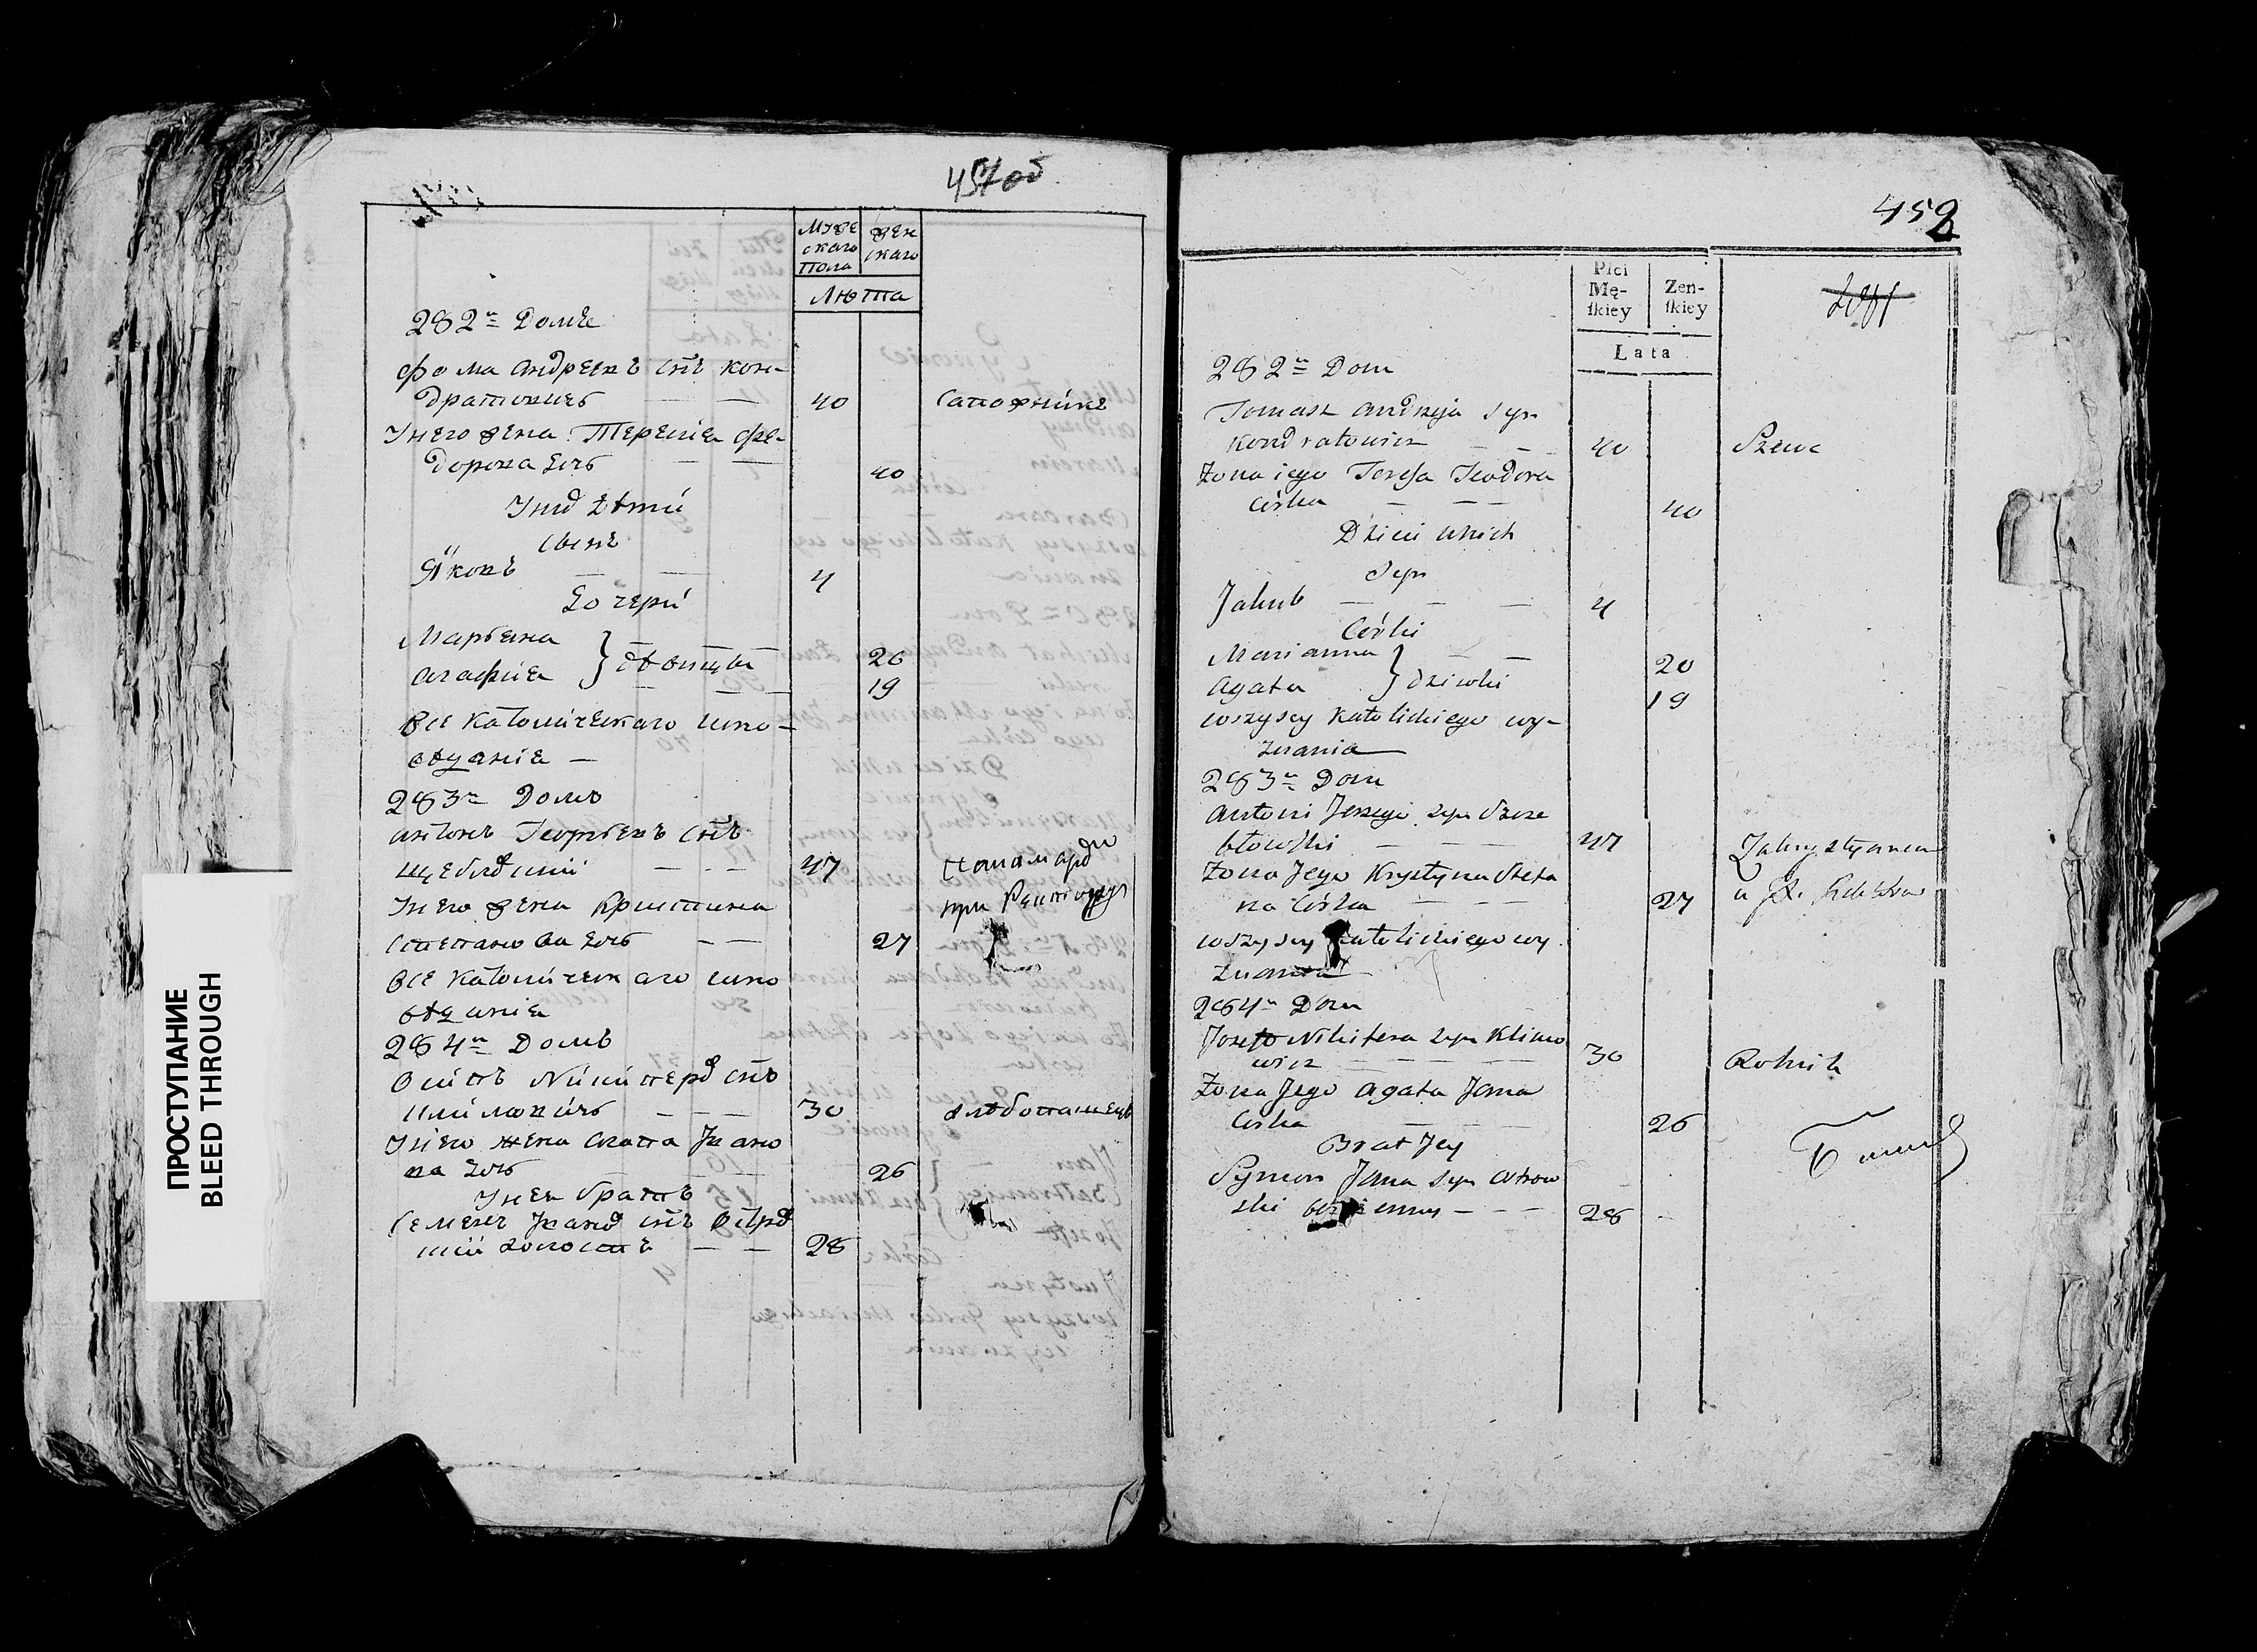 457 об
Мужескаго Пола
Женскаго
Лѣта
282й Домъ
Фома Андреевъ снъ Кон-
дратовичъ — — 40 Сапожникъ
У него жена Терезіа Фе-
дорова дочь — — 40
У нихъ дѣти
сынъ
Яковъ — — 4
дочери
Марьяна } — 20
Агафия } дѣвицы — 19
Все Католическаго испо-
вѣданія —
283й Домъ
Антонъ Георгіевъ снъ
— - - 47 Панамарь
У него жена Кристина при
Степанова дочь — — 27
Все Католическаго испо
вѣданія
284й Домъ
Осипъ снъ
Климовичъ — - - 30 хлѣбопашецъ
У него жена Агата Ивано
ва дочь — — 26
У ней братъ
Семенъ Ивановъ снъ Остров
скій холостъ — — 28
ПРОСТУПАНИЕ
BLEED THROUGH
452
Płci Mę-
ſkiey
Zen-
ſkiey
Lata
282 Dom
Tomasz Andrzeja Syn
Kondratowicz — — 40 Szewc
Zona iego Teressa Teodora
Córka — — — 40
Dzieci u nich
Syn
Jakub — — — 4
Córki
Marianna } — — 20
Agata } dziewki 19
wszyscy Katolickiego wy-
znania
283 Dom
Antoni Jerzego syn Szcze
błowski — — — 47 Zakrystyan
Zona Jego Krystyna Stefa
na Córka — — — 27
wszyscy Katolickiego wy
znania
284 Dom
Jozeff Nikifera syn Klimo
wicz — — — 30 Rolnik
Zona Jego Agata Jana
Córka — — 26
Brat Jey
Symon Jana syn Ostrow
ski bezżenny — - - - 28